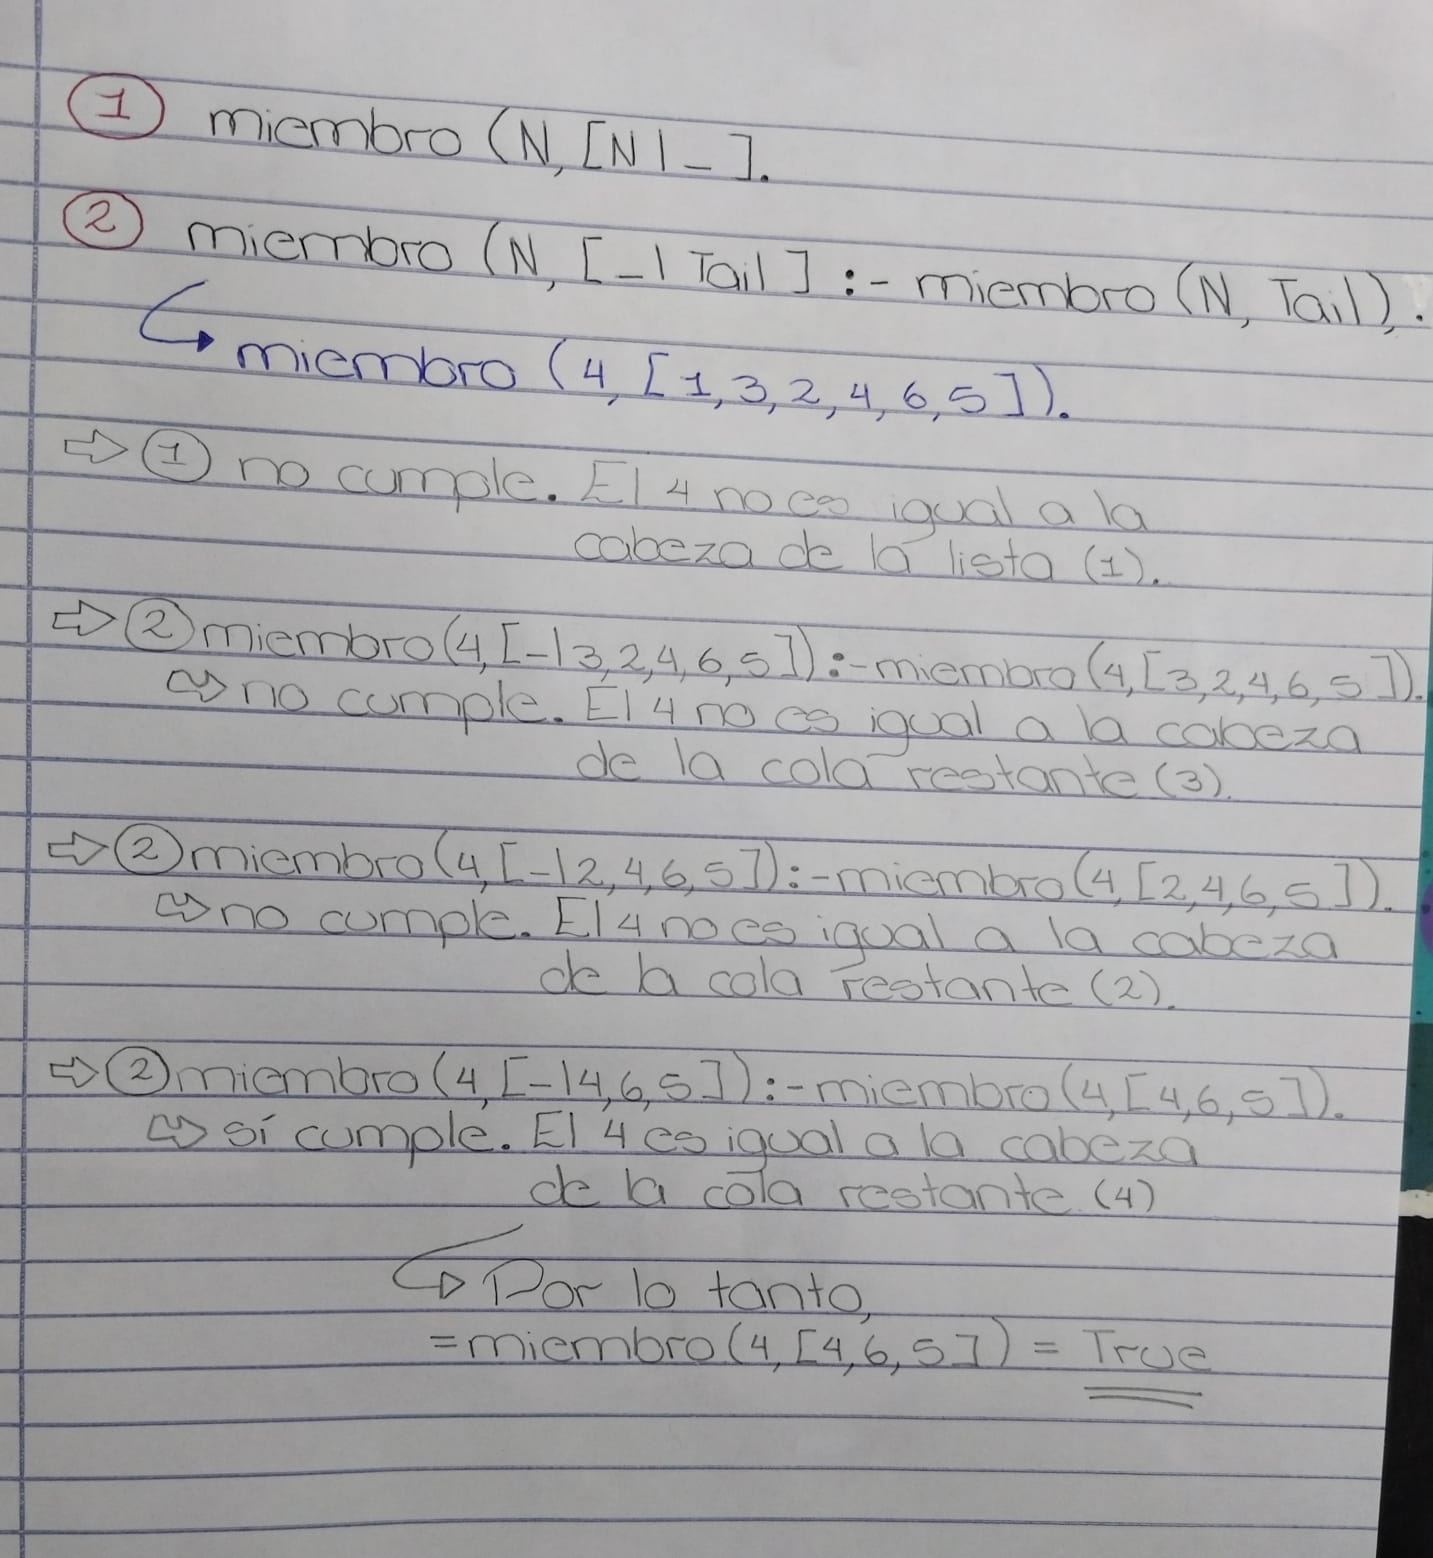 ① miembro (N, [N|_].
② miembro (N, [_| Tail] :- miembro (N, Tail).
miembro (4, [1,3,2,4,6,5]).
⇨ ① no cumple. El 4 no es igual a la
cabeza de la lista (1).
⇨ ② miembro(4, [_|3,2,4,6,5]) :- miembro(4, [3,2,4,6,5]).
⇨ no cumple. El 4 no es igual a la cabeza
de la cola restante (3).
⇨ ② miembro(4, [_|2,4,6,5]) :- miembro(4, [2,4,6,5]).
⇨ no cumple. El 4 no es igual a la cabeza
de la cola restante (2).
⇨ ② miembro(4, [_|4,6,5]) :- miembro(4, [4,6,5]).
⇨ sí cumple. El 4 es igual a la cabeza
de la cola restante (4)
Por lo tanto,
= miembro(4, [4,6,5]) = True